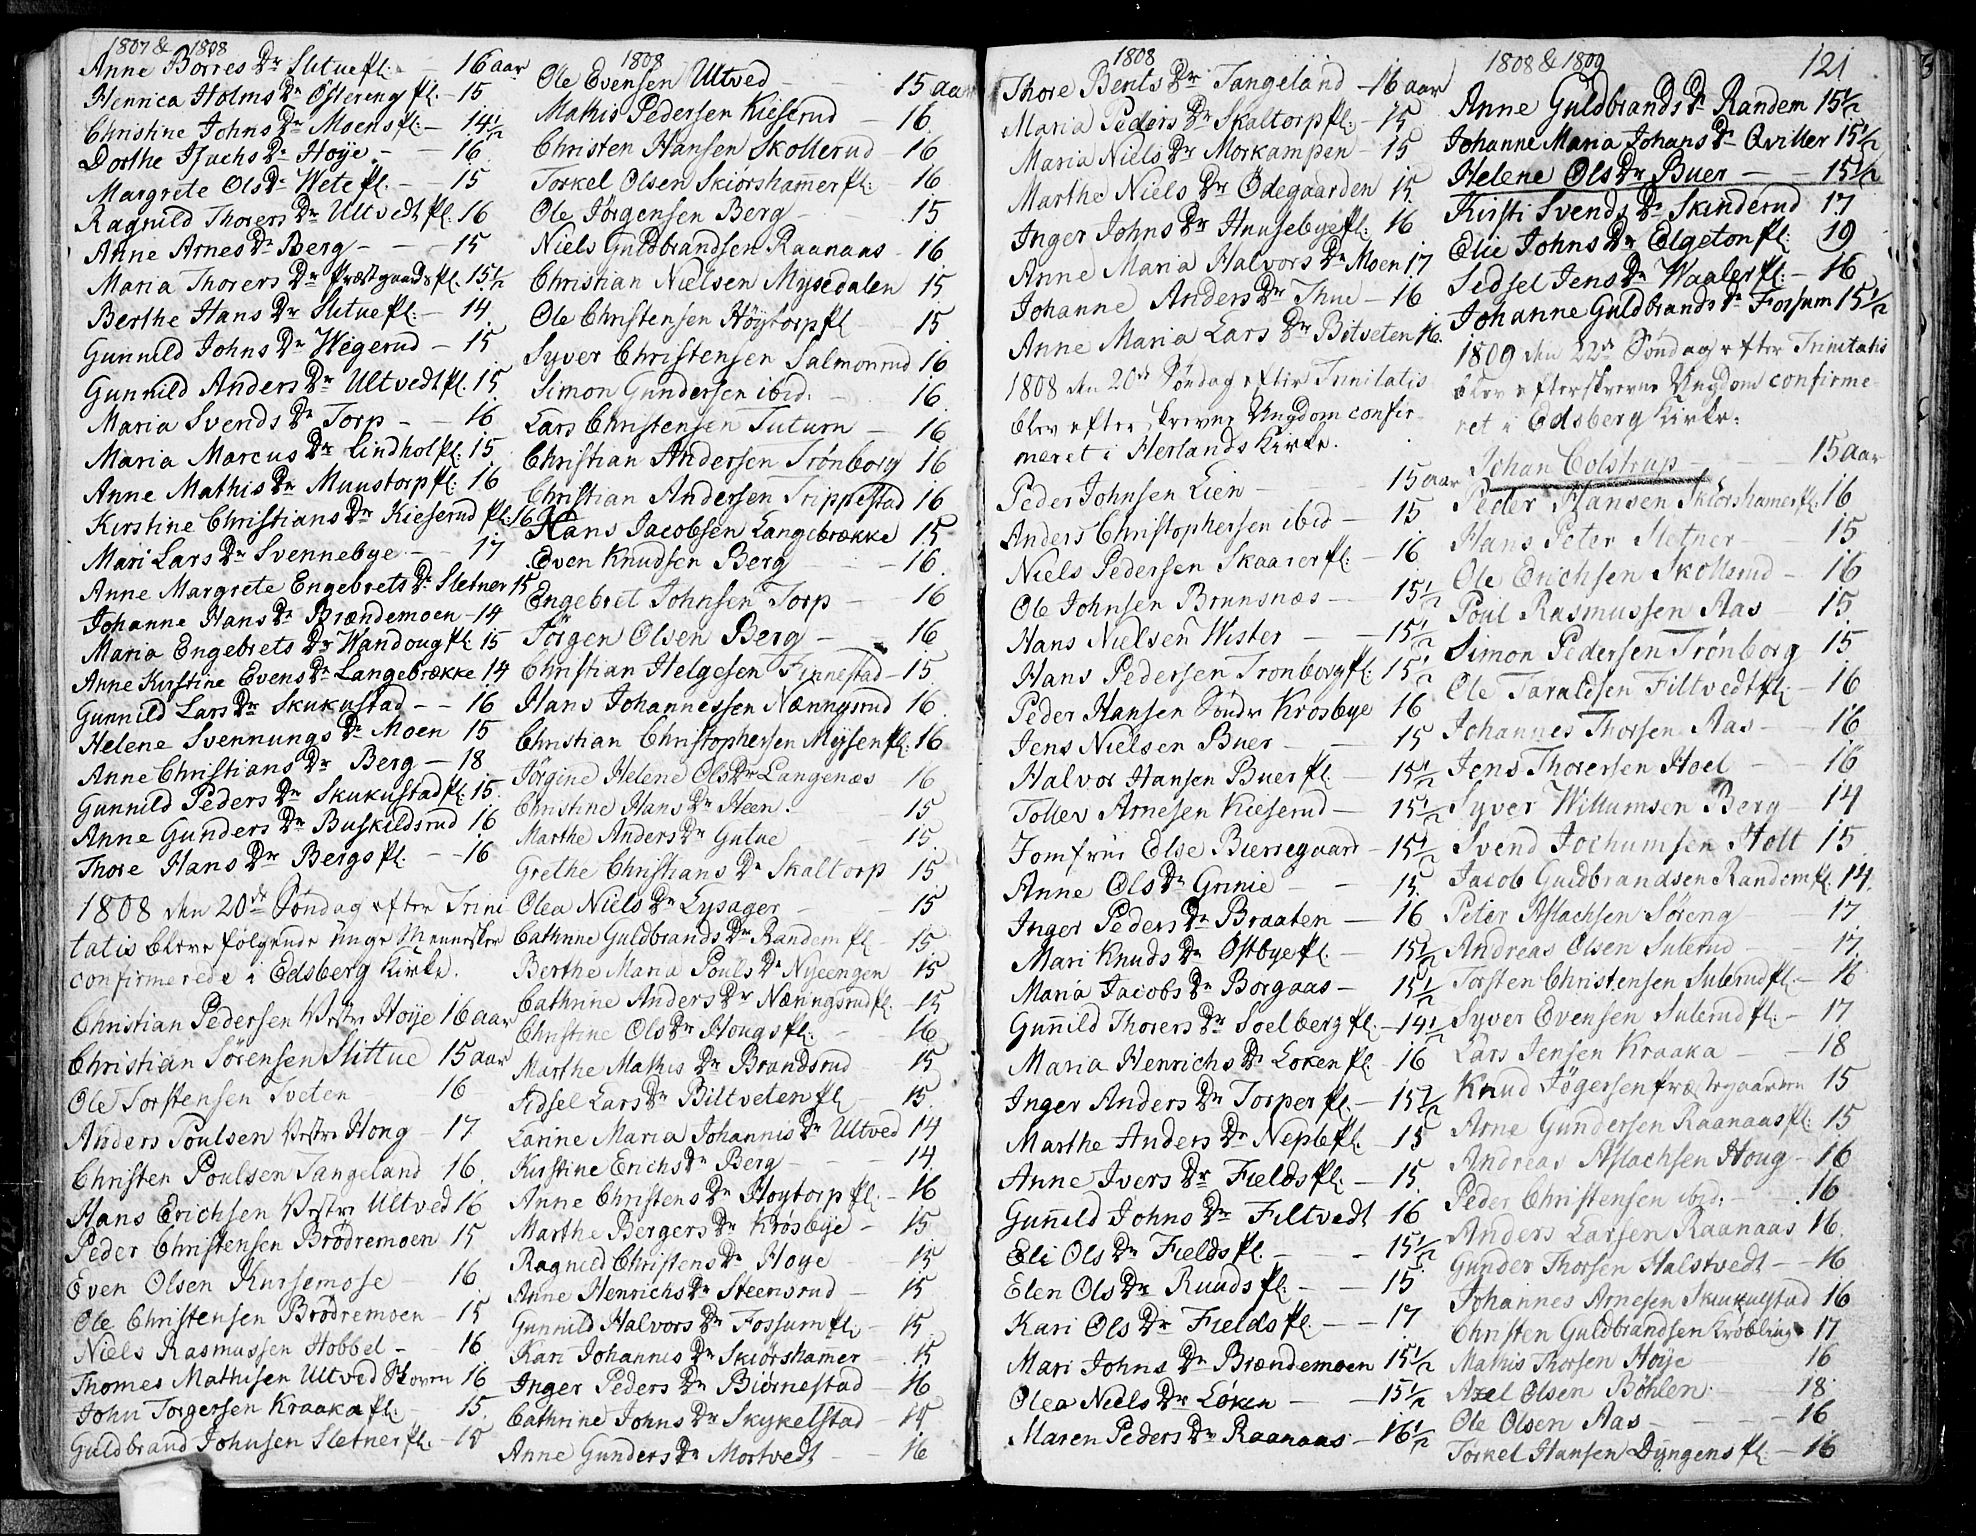 1807 & 1808
Anne Borres Dr Slituepl. - 16 aar
Henrica Holms Dr Østereng pl. - 15
Christine Johns Dr Moenspl. - 14½
Dorthe Isachs Dr Høye - - 16
Margrete Ols Dr Wetepl. - - 15
Ragnild Thorers Dr Ultvedtpl. 16
Anne Arnes Dr Berg - - - 15
Maria Thorers Dr Præstgaardspl. 15½
Berthe Hans Dr Slituepl. - 14
Gunnild Johns Dr Wegerud - 15
Gunnild Anders Dr Ultvedtpl. 15
Maria Svends Dr Torp - - 16
Maria Marcus Dr Lindholpl. 15
Anne Mathis Dr Muustorppl. 16
Kirstine Christians Dr Kieserud pl. 16
Mari Lars Dr Svennebye - - 17
Anne Margrete Engebrets Dr Sletner 15
Johanne Hans Dr Brændemoen - 14
Maria Engebrets Dr Wandougpl 15
Anne Kirstine Evens Dr Langebrække 14
Gunnild Lars Dr Skukustad - - 16
Helene Svennungs Dr Moen 15
Anne Christians Dr Berg - 18
Gunnild Peders Dr Skukustadpl. 15
Anne Gunders Dr Buskildsrud 16
Thore Hans Dr Bergspl. - - 16
1808 den 20de Søndag efter Trini
tatis bleve følgende unge Mennesker
confirmerede i Edsberg Kirke.
Christian Pedersen Vestre Høije 16 aar
Christian Sørensen Slittue 15 aar
Ole Torstensen Tveten - 16
Anders Poulsen Vestre Houg - 17
Christen Poulsen Tangeland 16
Hans Erichsen Vestre Ultved 16
Peder Christensen Brødremoen 15
Even Olsen Kursemose - 16
Ole Christensen Brødremoen - 15
Niels Rasmussen Hobbel - 16
Thomes Mathisen Ultved Skoven 16
John Torgersen Kraaka pl. - 15
Guldbrand Johnsen Sletnerpl. - 15
1808
Ole Evensen Ultved - - 15 aar
Mathis Pedersen Kieserud - 16
Christen Hansen Skollerud - 16
Torkel Olsen Skiørshamerpl. 16
Ole Jørgensen Berg - 15
Niels Guldbrandsen Raanaas - 16
Christian Nielsen Mysedalen 15
Ole Christensen Høytorppl - 15
Syver Christensen Salmonrud 16
Simon Gundersen ibid. - 16
Lars Christensen Tuturn - 16
Christian Andersen Trønborg 16
Christian Andersen Trippestad 16
Hans Jacobsen Langebrække 15
Even Knudsen Berg - 16
Engebret Johnsen Torp - 16
Jørgen Olsen Berg - - 16
Christian Helgesen Finnestad - 15
Hans Johannessen Nænngsrud 16
Christian Christophersen Mysenpl. 16
Jørgine Helene Ols Dr Langenæs 16
Christine Hans Dr Heen. - 15
Marthe Anders Dr Gulue - 15
Grethe Christians Dr Skaltorp 15
Olea Niels Dr Lysager - - 15
Cathrine Guldbrands Dr Randem pl - 15
Berthe Maria Pouls Dr Nyeengen 15
Cathrine Anders Dr Nænngsrudpl. - 15
Christine Ols Dr Hougspl. - 16
Marthe Mathis Dr Brandsrud 15
Sidsel Lars Dr Biltvetenpl - 15
Larine Maria Johannis Dr Ultved 14
Kirstine Erichs Dr Berg - - 14
Anne Christens Dr Høytorp pl. - 16
Marthe Bergers Dr Krosbye - 15
Ragnild Christens Dr Høye - 15
Anne Henrichs Dr Steensrud - 15
Gunnild Halvors Dr Fossumpl. - 15
Kari Johannis Dr Skiørshamer - 15
Inger Peders Dr Biørnestad - 16
Cathrine Johns Dr Skykelstad - 15
Anne Gunders Dr Mortvedt - 16
1808
Thore Bents Dr Tangeland - 16 aar
Maria Peders Dr Skaltorppl. - 15
Maria Niels Dr Morkampen - 15
Marthe Niels Dr Ødegaarden 15
Inger Johns Dr Huusebyepl. 16
Anne Maria Halvors Dr Moen 17
Johanne Anders Dr Thue - 16
Anne Maria Lars Dr Bitveten 16
1808 den 20de Søndag efter Trinitatis
blev efterskrevne Ungdom confir
meret i Herlands Kirke.
Peder Johnsen Lien - - 15 aar
Anders Christophersen ibid - 15
Niels Pedersen Skaarerpl. - 16
Ole Johnsen Brunsnæs - - 15½
Hans Nielsen Wister - - 15½
Hans Pedersen Tronborgpl. 15½
Peder Hansen Søndre Krosbye 16
Jens Nielsen Buer - - 15
Halvor Hansen Buerpl. - 15½
Tollev Arnesen Kieserud - 15½
Jomfrue Else Bierregaard - 15½
Anne Ols Dr Grinie - - 15
Inger Peders Dr Braaten - 16
Mari Knuds Dr Østbyepl. - 15½
Maria Jacobs Dr Borgaas - 15½
Gunnild Thorers Dr Soelberg pl. - 14½
Maria Henrichs Dr Løken pl. 16
Inger Anders Dr Torper pl. - 15½
Marthe Anders Dr Neplepl. - 15
Anne Ivers Dr Fieldspl. - 15
Gunnild Johns Dr Filtvedt 16
Eli Ols Dr Fieldspl. - - 15½
Elen Ols Dr Ruudspl. - - 15
Kari Ols Dr Fieldspl - - 17
Mari Johns Dr Brændemoen 15½
Olea Niels Dr Løken - - 15½
Maren Peders Dr Raanaas - 16½
1808 & 1809 121
Anne Guldbrands Dr Randem 15½
Johanne Maria Johans Dr Qviller 15½
Helene Ols Dr Buer - - 15½
Kirsti Svends Dr Skinderud 17
Elie Johns Dr Elgetonpl. 19
Sidsel Jens Dr Waalerpl. - 16
Johanne Guldbrands Dr Fossum 15½
1809 den 22de Søndag efter Trinitatis
blev efterskrevne Ungdom confirme-
ret i Edsberg Kirke.
Johan Colstrup - - 15 aar
Peder Hansen Skiørshamerpl. 16
Hans Peter Sletner - 15
Ole Erichsen Skollerud - 16
Poul Rasmussen Aas 15
Simon Pedersen Trønborg 15
Ole Taraldsen Filtvedtpl. - 16
Johannes Thorsen Aas - 16
Jens Thorersen Hoel - 16
Syver Willumsen Berg - 14
Svend Jochumsen Holt 15
Jacob Guldbrandsen Randempl. 14
Peter Aslachsen Søreng 17
Andreas Olsen Sulerud - 17
Torsten Christensen Sulerudpl. - 16
Syver Evensen Sulerud pl. - 17
Lars Jensen Kraaka - - 18
Knud Jøgersen Præstegaarden 15
Arne Gundersen Raanaaspl. 15
Andreas Aslachsen Houg - 16
Peder Christensen ibid. - 16
Anders Larsen Raanaas 16
Gunder Thorsen Halstvedt - - 16
Johannes Arnesen Skukulstad 16
Christen Guldbrandsen Krøbling 17
Mathis Thorsen Høije 16
Axel Olsen Bøhlen - 18
Ole Olsen Aas - - - 16
Torkel Hansen Dyngenspl - 16